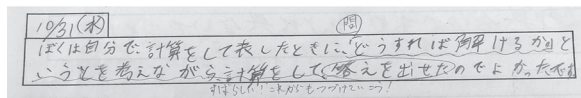 10/31(水)
問
ぼくは自分で、計算をして表したときに、どうすれば解けるかと
いうことを考えながら、計算をして、答えを出せたのでよかったです
すばらしい！これからもつづけていこう！